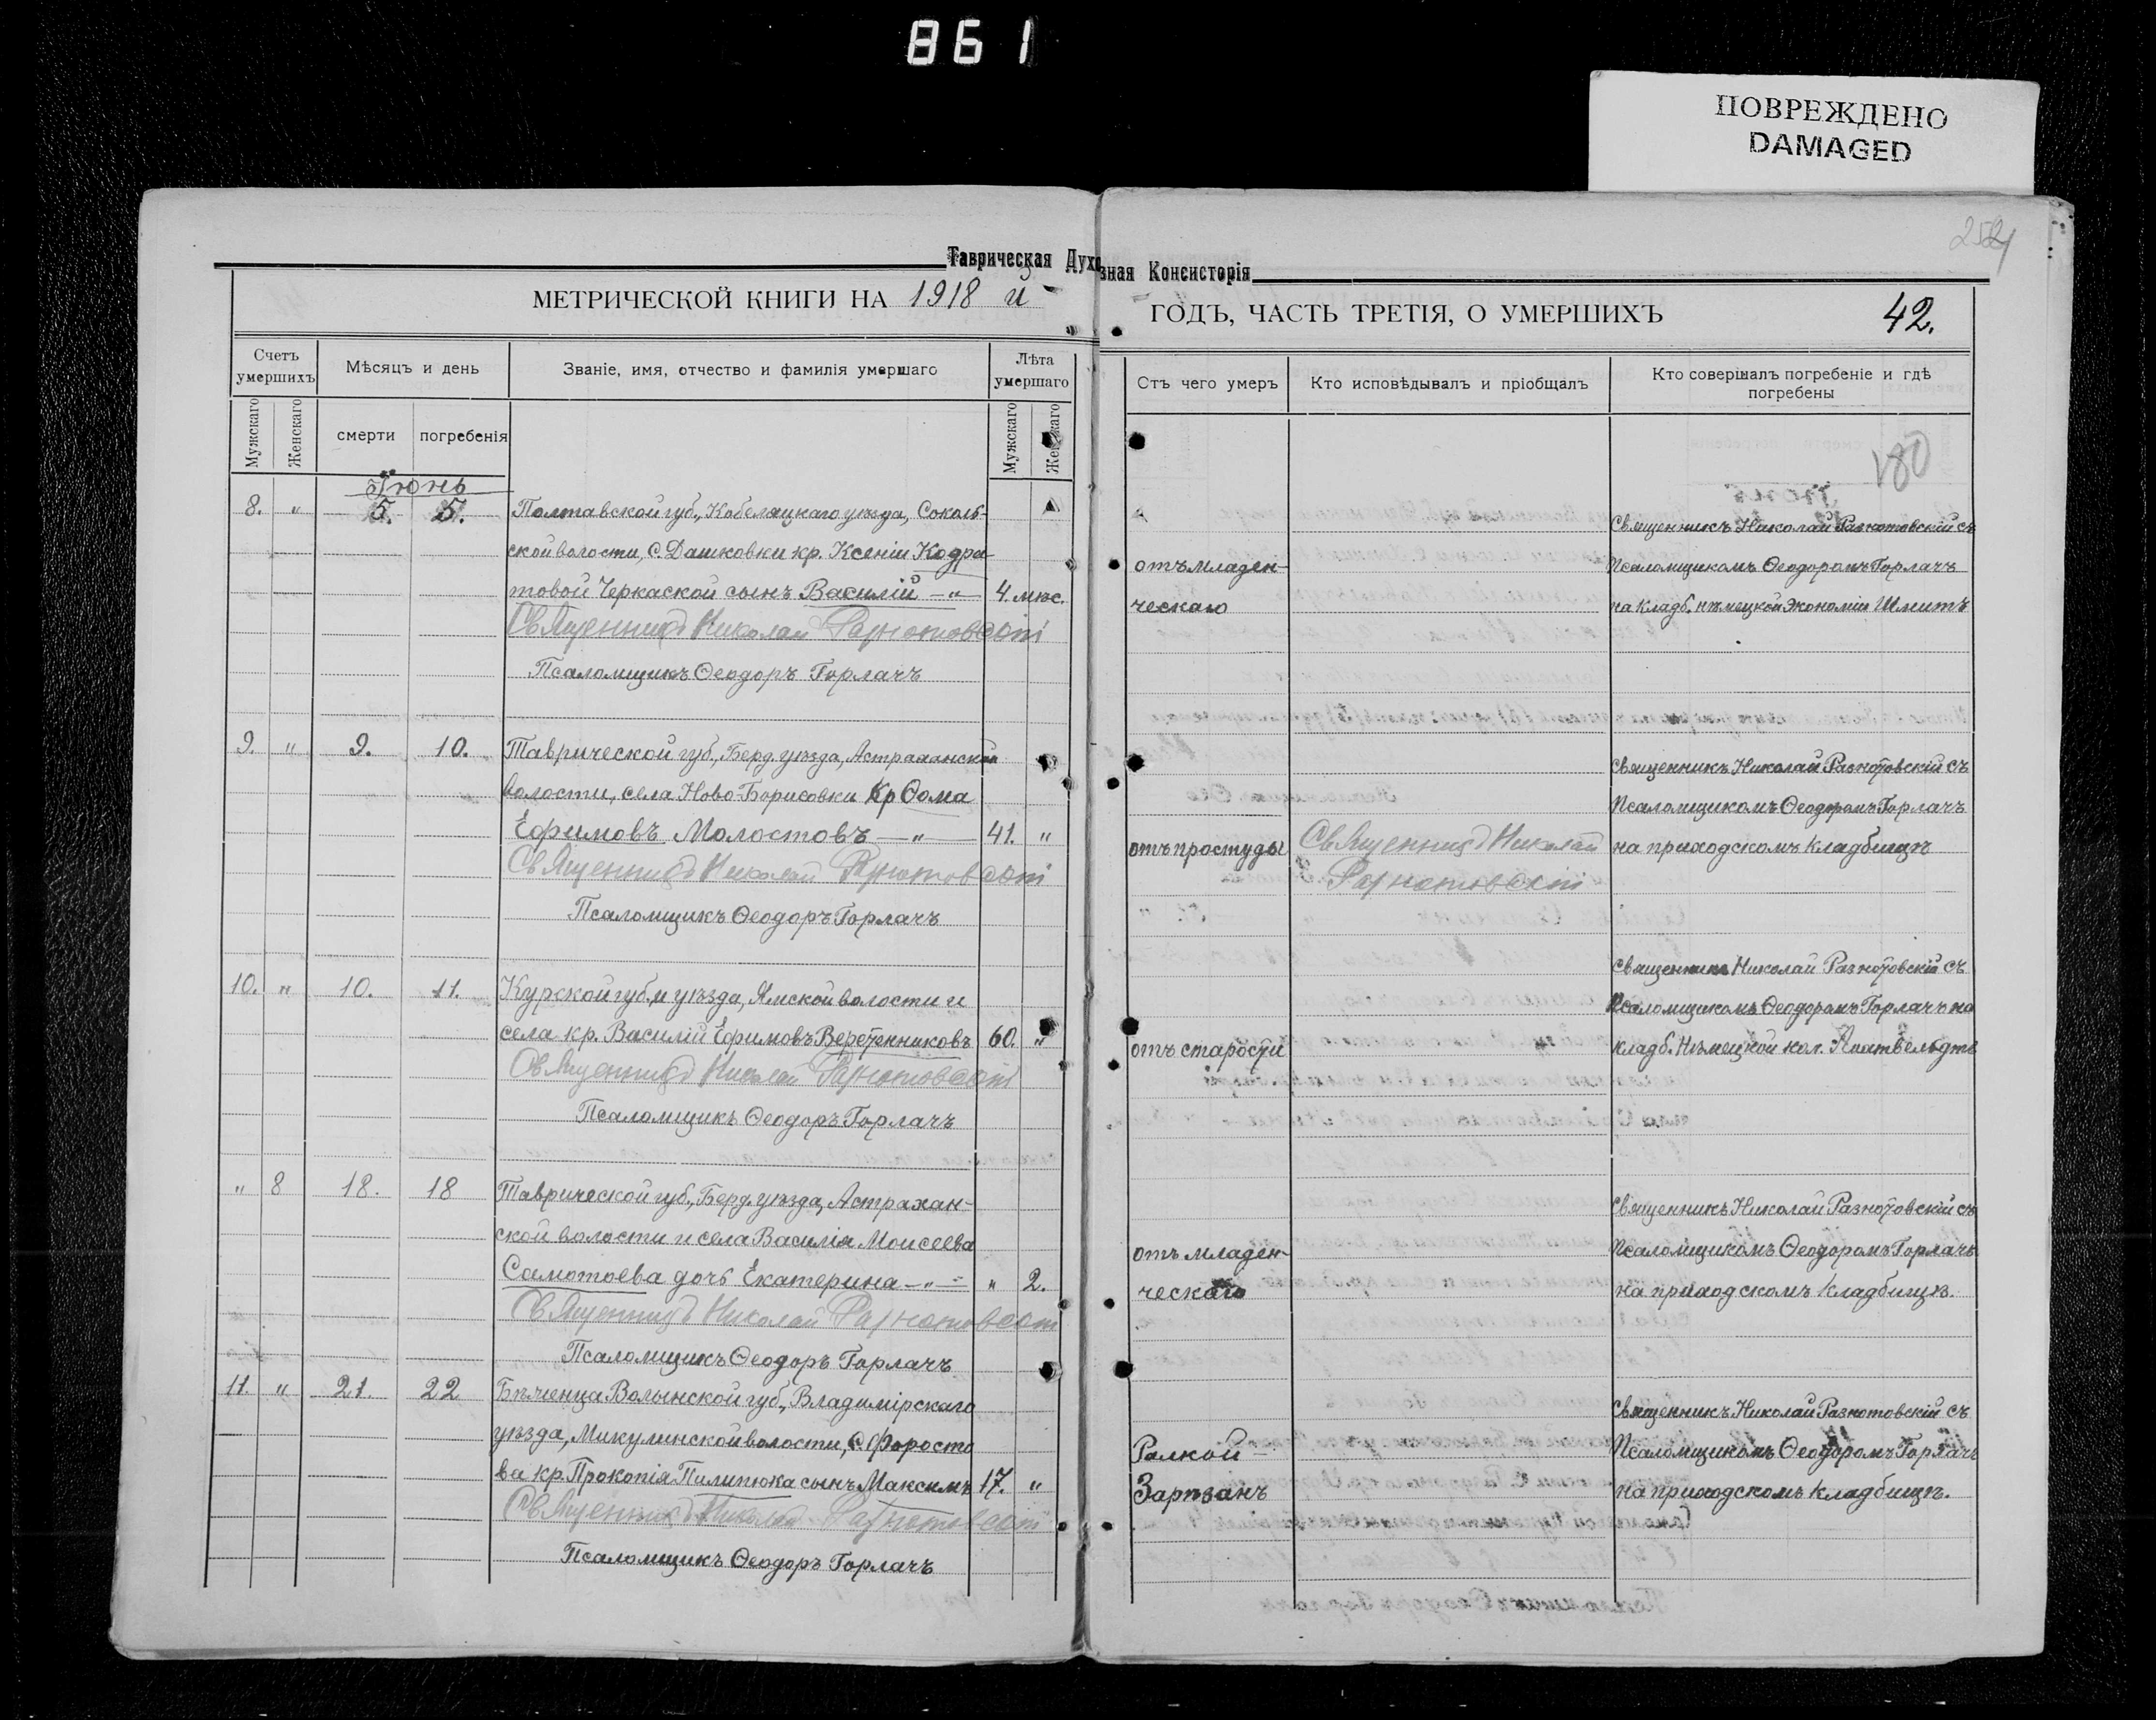 861
ПОВРЕЖДЕНО
DAMAGED
Таврическая Духовная Консисторія
МЕТРИЧЕСКОЙ КНИГИ НА 1918 й
ГОДЪ, ЧАСТЬ ТРЕТІЯ, О УМЕРШИХЪ
42.
Счетъ умершихъ
Мѣсяцъ и день
Званіе, имя, отчество и фамилія умершаго
Лѣта умершаго
Отъ чего умеръ
Кто исповѣдывалъ и пріобщалъ
Кто совершалъ погребеніе и гдѣ погребены
Мужскаго
Женскаго
смерти
погребенія
Мужскаго
Женскаго
180
Іюнь
8. " 5. 5. Полтавской губ., Кобеляцкаго уѣзда, Соколь-
Священникъ Николай Разнотовскій съ
ской волости, с. Дашковки кр. Ксеніи Кодра-
отъ младен-
Псаломщикомъ Ѳеодоромъ Горлачъ
товой Черкаской сынъ Василій —"— 4. мѣс.
ческаго
на кладб. нѣмецкой Экономіи Шмитъ
Священникъ Николай Разнотовскій
Псаломщикъ Ѳеодоръ Горлачъ
9. " 9. 10. Таврической губ., Берд. уѣзда, Астраханской
Священникъ Николай Разнотовскій съ
волости, села Ново-Борисовки кр Ѳома
Псаломщикомъ Ѳеодоромъ Горлачъ
Ефимовъ Молостовъ —"— 41. "
отъ простуды
Священникъ Николай
Разнотовскій
на приходскомъ кладбищѣ
Священникъ Николай Разнотовскій
Псаломщикъ Ѳеодоръ Горлачъ
10. " 10. 11. Курской губ. и уѣзда, Ямской волости и
Священникъ Николай Разнотовскій съ
Псаломщикомъ Ѳеодоромъ Горлачъ на
села кр. Василій Ефимовъ Веретенниковъ 60. "
отъ старости
кладб. Нѣмецкой кол.
Священникъ Николай Разнотовскій
Псаломщикъ Ѳеодоръ Горлачъ
" 8 18. 18 Таврической губ., Берд. уѣзда, Астрахан-
Священникъ Николай Разнотовскій съ
ской волости и села Василія Моисеева
отъ младен-
Псаломщикомъ Ѳеодоромъ Горлачъ
Самотоева дочь Екатерина —"— " 2.
ческаго
на приходскомъ кладбищѣ.
Священникъ Николай Разнотовскій
Псаломщикъ Ѳеодоръ Горлачъ
11. " 21. 22 Бѣженца Волынской губ., Владимірскаго
Священникъ Николай Разнотовскій съ
уѣзда, Микулинской волости, с. Форосто
Псаломщикомъ Ѳеодоромъ Горлачъ
ва кр. Прокопія Пилипюка сынъ Максимъ 17. "
Зарѣзанъ
на приходскомъ кладбищѣ.
Священникъ Николай Разнотовскій
Псаломщикъ Ѳеодоръ Горлачъ